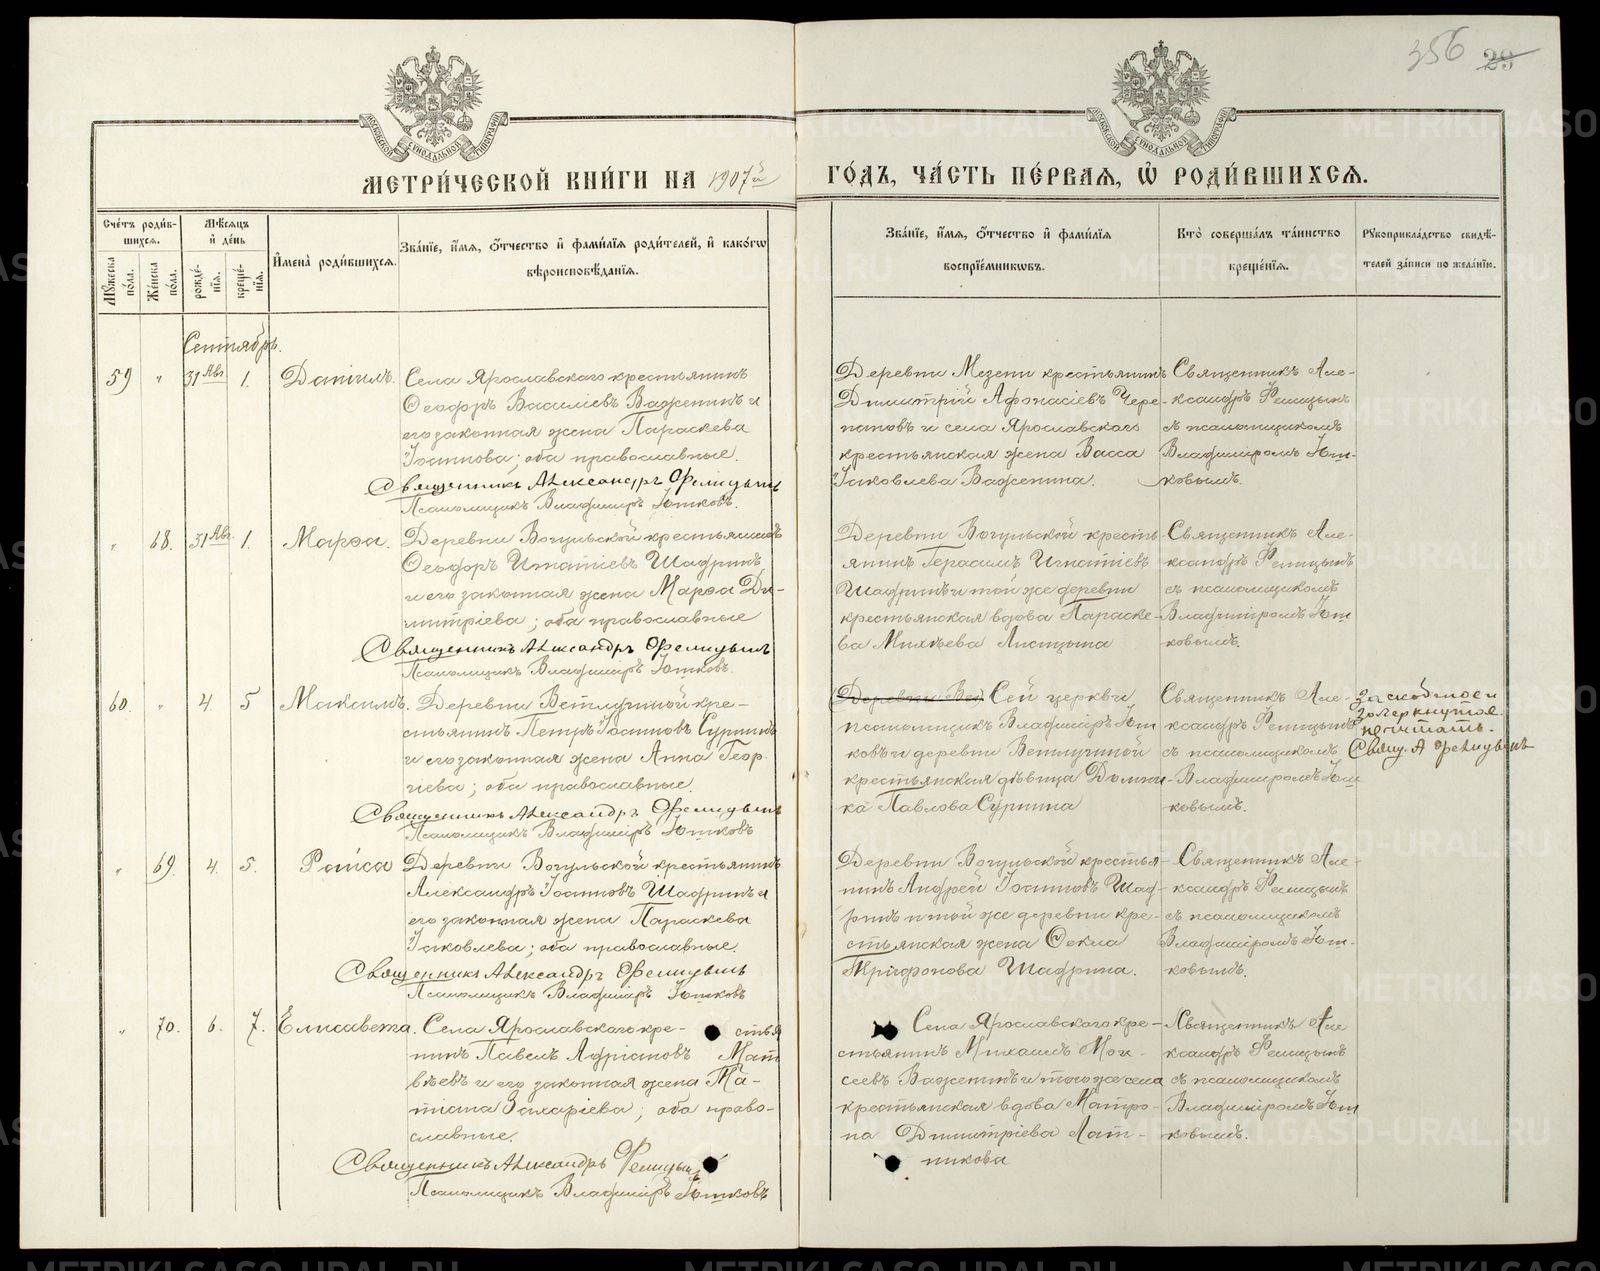 356 29
МОСКОВСКОЙ СѴНОДАЛЬНОЙ ТИПОГРАФІИ
МОСКОВСКОЙ СѴНОДАЛЬНОЙ ТИПОГРАФІИ
МЕТРИ́ЧЕСКОЙ КНИ́ГИ НА 1907й ГО́ДЪ, ЧА́СТЬ ПЕ́РВАѦ, Ѽ РОДИ́ВШИХСѦ.
Сче́тъ роди́в-
шихсѧ.
Мꙋ́жеска по́ла.
Же́нска по́ла.
Мѣ́сѧцъ
и҆ де́нь
рожде́-
нїѧ.
креще́-
нїѧ.
И҆мена̀ роди́вшихсѧ.
Зва́нїе, и҆́мѧ, ѻ҆́тчество и҆ фами́лїѧ роди́телей, и҆ како́гѡ
вѣроисповѣ́данїѧ.
Зва́нїе, и҆́мѧ, ѻ҆́тчество и҆ фами́лїѧ
воспрїе́мникѡвъ.
Кто̀ соверша́лъ та́инство
креще́нїѧ.
Рꙋкоприкла́дство свидѣ́-
телей за́писи по жела́нїю.
Сентябрь.
59 " 31 Авг. 1. Даніилъ.
Села Ярославскаго крестьянинъ
Ѳеодоръ Василіевъ Важенинъ и
его законная жена Параскева
Іоаннова; оба православные.
Священникъ Александръ Фелицынъ
Псаломщикъ Владиміръ Ютковъ.
Деревни Мезени крестьянинъ
Димитрій Афонасіевъ Чере-
пановъ и села Ярославскаго
крестьянская жена Васса
Іаковлева Важенина.
Священникъ Але-
ксандръ Фелицынъ
съ псаломщикомъ
Владиміромъ Ют-
ковымъ.
" 68. 31 Авг. 1. Марѳа.
Деревни Вогульской крестьянинъ
Ѳеодоръ Игнатіевъ Шадринъ
и его законная жена Марѳа Ди-
митріева; оба православные
Священникъ Александръ Фелицынъ
Псаломщикъ Владиміръ Ютковъ.
Деревни Вогульской кресть-
янинъ Герасимъ Игнатіевъ
Шадринъ и той же деревни
крестьянская вдова Параске-
ва Михѣева Листцына
Священникъ Але-
ксандръ Фелицынъ
съ псаломщикомъ
Владиміромъ Ют
ковымъ.
60. " 4. 5 Максимъ.
Деревни Ветлугиной кре-
стьянинъ Петръ Іоанновъ Суринъ
и его законная жена Анна Геор
гіева; оба православные.
Священникъ Александръ Фелицынъ
Псаломщикъ Владиміръ Ютковъ
Деревни Вет Сей церкви
псаломщикъ Владиміръ Ют
ковъ и деревни Ветлугиной
крестьянская дѣвица Домни-
ка Павлова Сурина
Священникъ Але-
ксандръ Фелицынъ
съ псаломщикомъ
Владиміромъ Ют
ковымъ.
зачеркнутое
не читать.
Свящ. А Фелицынъ
" 69. 4. 5. Раиса
Деревни Вогульской крестьянинъ
Александръ Іоанновъ Шадринъ и
его законная жена Параскева
Іаковлева; оба православные.
Священникъ Александръ Фелицынъ
Псаломщикъ Владиміръ Ютковъ
Деревни Вогульской крестья-
нинъ Андрей Іоанновъ Шад-
ринъ и той же деревни кре-
стьянская жена Ѳекла
Трифонова Шадрина.
Священникъ Але-
ксандръ Фелицынъ
съ псаломщикомъ
Владиміромъ Ют-
ковымъ.
" 70. 6. 7. Елисавета.
Села Ярославскаго кре- стья
нинъ Павелъ Адріановъ Мат
вѣевъ и его законная жена Та-
тіана Захаріева; оба право-
славные.
Священникъ Александръ Фелицынъ
Псаломщикъ Владиміръ Ютковъ
Села Ярославскаго кре-
стьянинъ Михаилъ Мои-
сеевъ Важенинъ и того же села
крестьянская вдова Матро-
на Димитріева Лат-
никова
Священникъ Але
ксандръ Фелицынъ
съ псаломщикомъ
Владиміромъ Ют
ковымъ.
METRIKI.GASO-URAL.RU